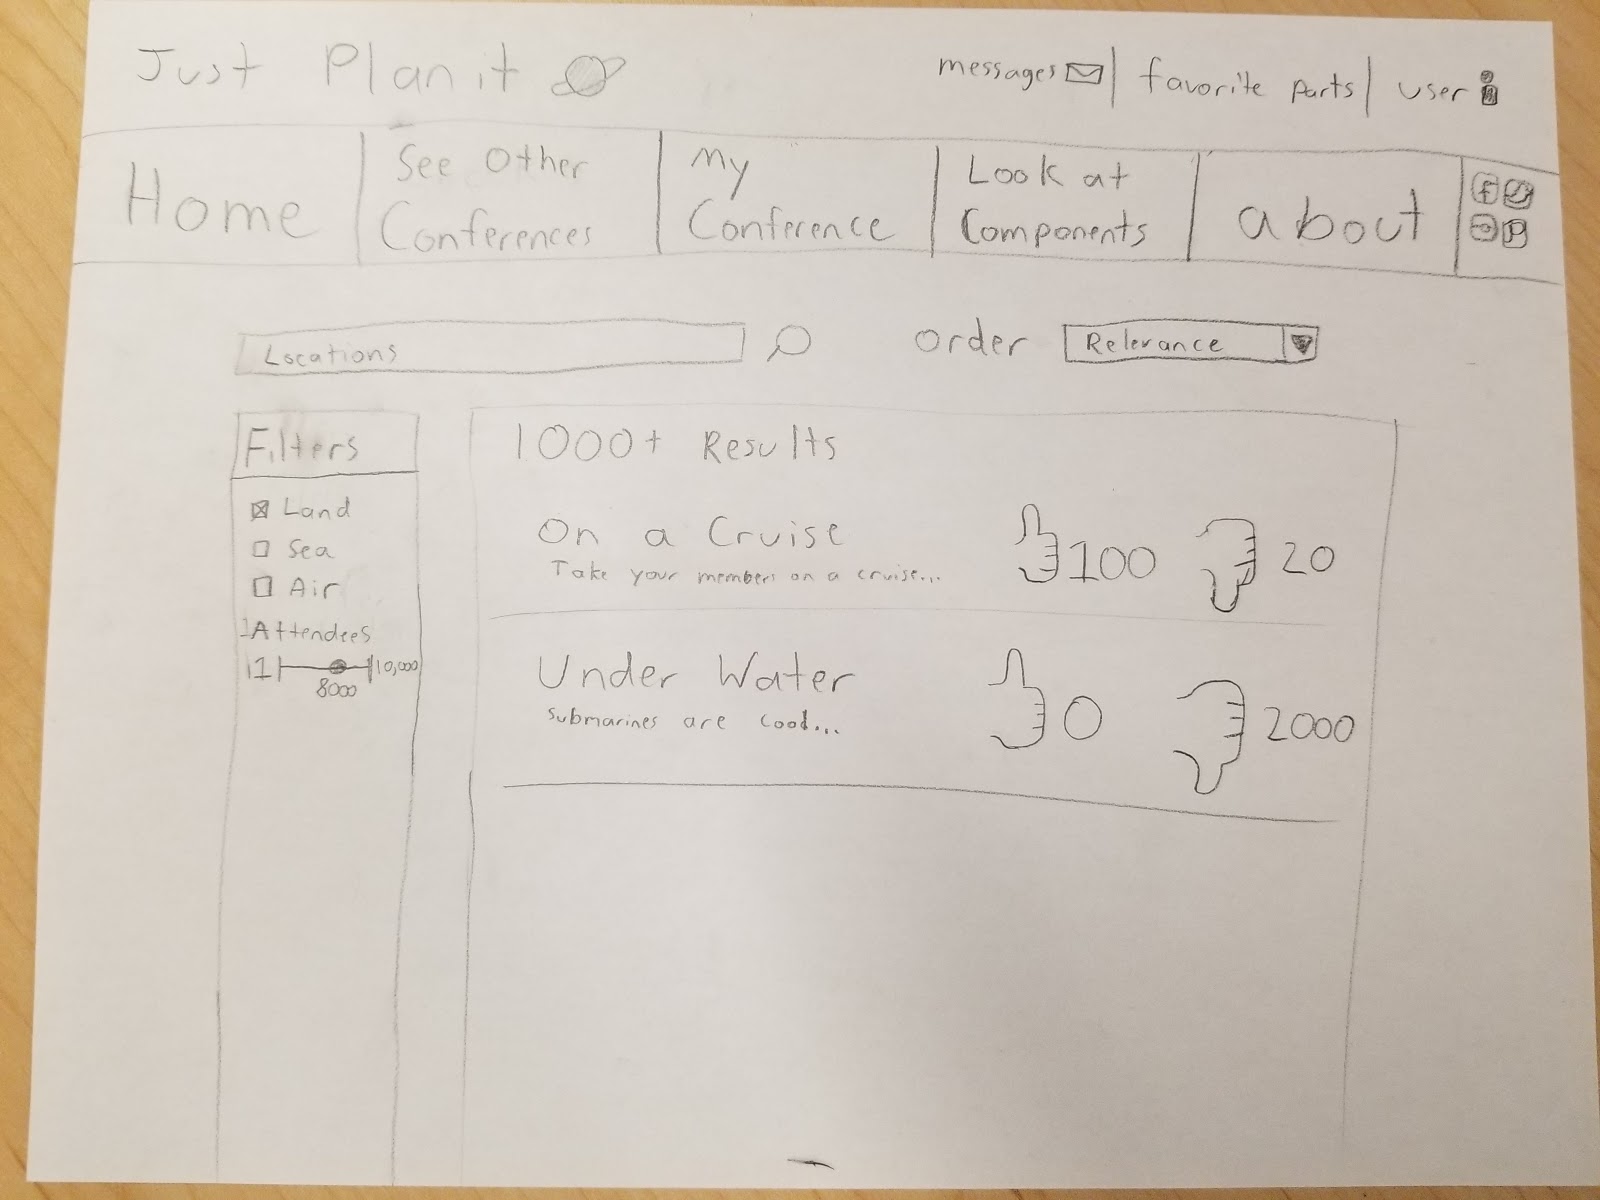 Just Planit
messages | favorite parts | user
Home
See Other
Conferences
My
Conference
Look at
Components
about
f
P
Locations
Order
Relevance
Filters
Land
Sea
Air
Attendees
1
10,000
8000
1000+ Results
On a Cruise
Take your members on a cruise...
100
20
Under Water
Submarines are cool...
0
2000